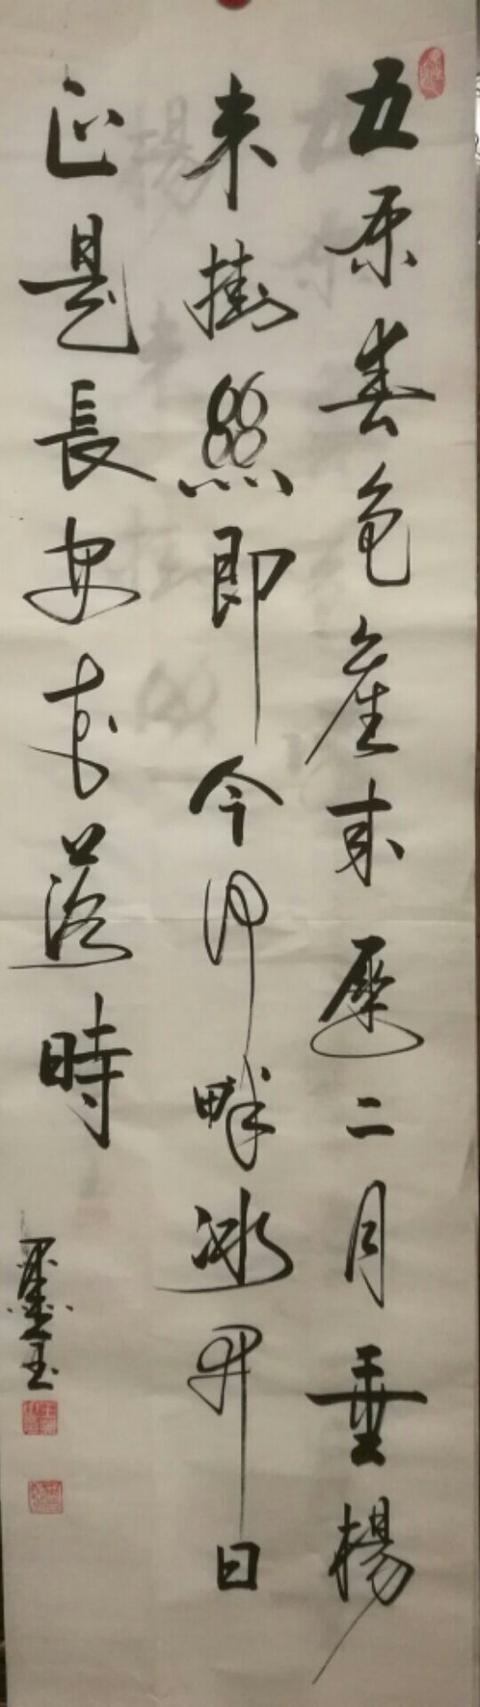 五原春色舊来遲二月垂楊
未掛絲即今河畔冰開日
正是長安花落時
墨玉